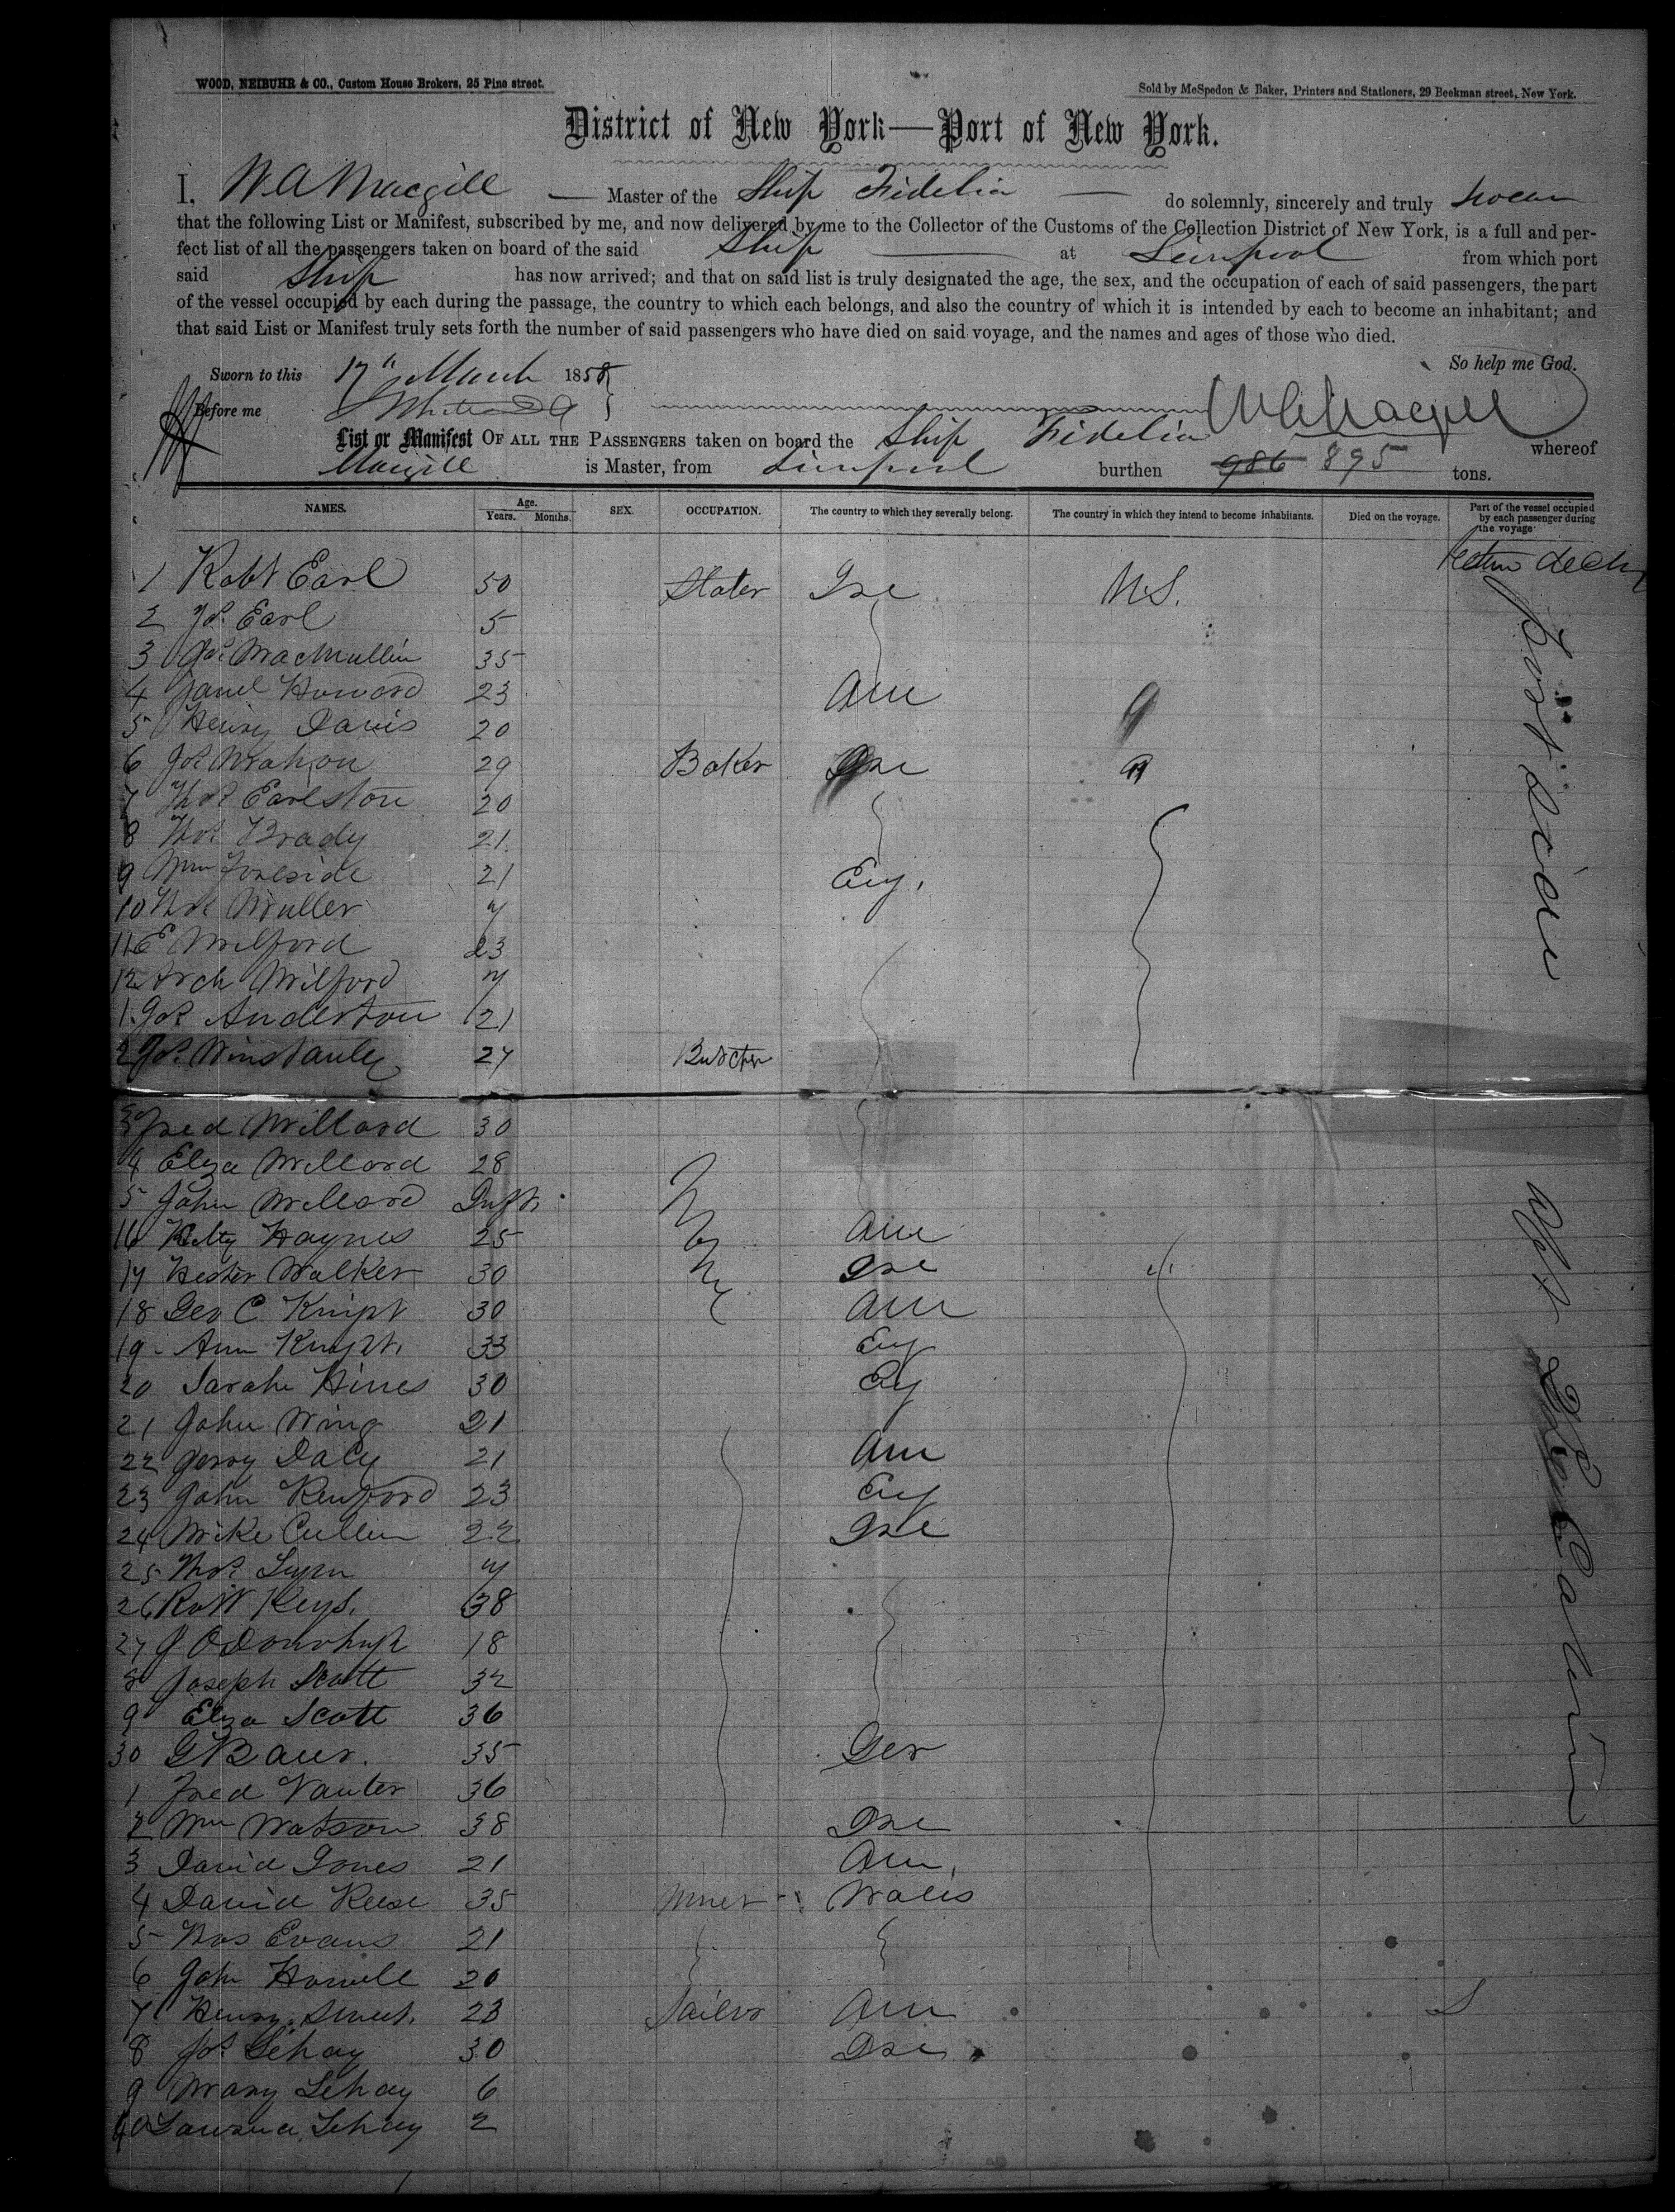 WOOD, NEIBUHR & CO., Custom House Brokers, 25 Pine street.
Sold by McSpedon & Baker, Printers and Stationers, 29 Beekman street, New York.
District of New York—Port of New York.
I, W A Macgill — Master of the Ship Fidelia — do solemnly, sincerely and truly swear
that the following List or Manifest, subscribed by me, and now delivered by me to the Collector of the Customs of the Collection District of New York, is a full and per-
fect list of all the passengers taken on board of the said Ship — at Liverpool from which port
said Ship has now arrived; and that on said list is truly designated the age, the sex, and the occupation of each of said passengers, the part
of the vessel occupied by each during the passage, the country to which each belongs, and also the country of which it is intended by each to become an inhabitant; and
that said List or Manifest truly sets forth the number of said passengers who have died on said voyage, and the names and ages of those who died.
So help me God.
Sworn to this 17" March 1858
Before me
W A Macgill
List or Manifest OF ALL THE PASSENGERS taken on board the Ship Fidelia whereof
Macgill is Master, from Liverpool burthen 986 895 tons.
NAMES. Age. Years. Months. SEX. OCCUPATION. The country to which they severally belong. The country in which they intend to become inhabitants. Died on the voyage. Part of the vessel occupied by each passenger during the voyage
1 Robt Earl 50 Slater Ire U.S.
2 Jos. Earl 5
3 Jos. MacMullin 35
4 Janel Howard 23 Am
5 Henry Davis 20
6 Jos Mahon 29 Baker Ire
7 Thos Earlston 20
8 Thos Brady 21
9 Wm Foreside 21 Eng.
10 Thos Muller 7
11 E Milford 23
12 Arch Milford 7
1 Jos Anderton 21
2 Jos. Winstanley 27 Butcher
3 Fred Millard 30
4 Eliza Millard 28
5 John Millard Inft.
16 Kelty Haynes 25 Am
17 Hester Walker 30 Ire
18 Geo C Knight 30 Am
19 Ann Knight. 33 Eng
20 Sarah Hines 30 Eng
21 John Wing 21
22 Jerry Daly 21 Am
23 John Renford 23 Eng
24 Mike Cullen 22 Ire
25 Thos. Lynn 7
26 Robt Keys. 38
27 J ODonohugh 18
8 Joseph Scott 32
9 Eliza Scott 36
30 G Baur. 35 Ger
1 Fred Vauter 36
2 Wm Watson 38 Ire
3 David Jones 21 Am.
4 David Reese 35 Miner Wales
5 Thos Evans 21
6 John Howell 20
7 Henry Street. 23 Sailor Am S
8 Jos. Lehay 30 Ire
9 Mary Lehay 6
40 Lawrence Lehay 2